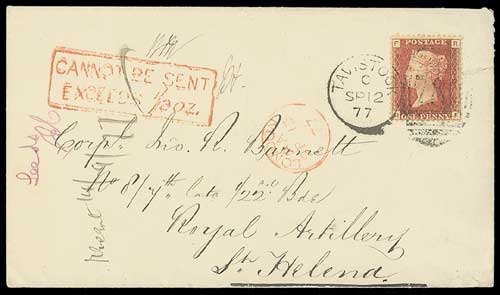 CANNOT BE SENT
EXCEEDS ½ oz.
TAVISTOCK
C
SP 12
77
POSTAGE
F R
R F
ONE PENNY
Corpl. Jno. R. Barnett
No 8/7th late 1/22nd Bde
Royal Artillery
St Helena